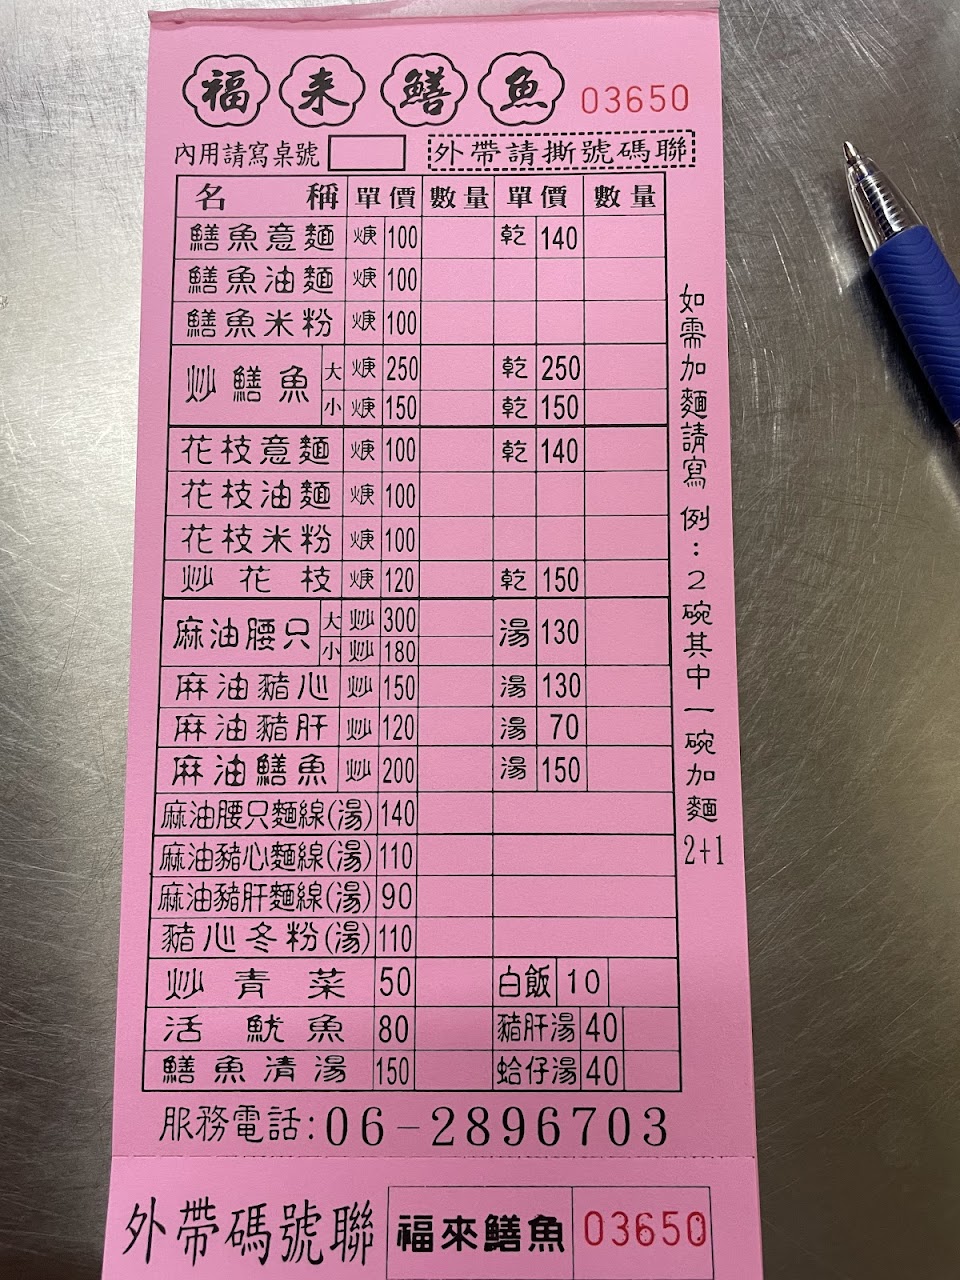 福来鱔魚 03650
內用請寫桌號 外帶請撕號碼聯
名稱 單價 數量 單價 數量
鱔魚意麵 焿 100 乾 140
鱔魚油麵 焿 100
鱔魚米粉 焿 100
炒鱔魚 大 焿 250 乾 250
小 焿 150 乾 150
花枝意麵 焿 100 乾 140
花枝油麵 焿 100
花枝米粉 焿 100
炒花枝 焿 120 乾 150
麻油腰只 大 炒 300 湯 130
小 炒 180
麻油豬心 炒 150 湯 130
麻油豬肝 炒 120 湯 70
麻油鱔魚 炒 200 湯 150
麻油腰只麵線(湯) 140
麻油豬心麵線(湯) 110
麻油豬肝麵線(湯) 90
豬心冬粉(湯) 110
炒青菜 50 白飯 10
活魷魚 80 豬肝湯 40
鱔魚清湯 150 蛤仔湯 40
如需加麵請寫 例：2碗其中一碗加麵 2+1
服務電話:06-2896703
外帶碼號聯 福來鱔魚 03650